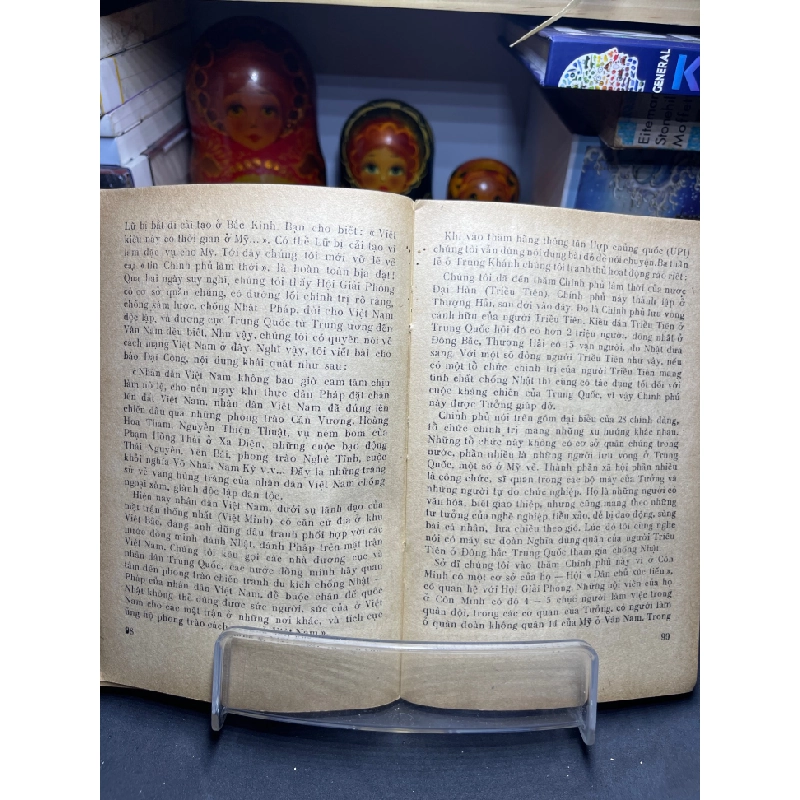 Lữ bị bắt đi cải tạo ở Bắc Kinh. Bạn cho biết: « Việt
kiều này có thời gian ở Mỹ... ». Có thể Lữ bị cải tạo vì
làm đặc vụ cho Mỹ. Tới đây chúng tôi mới vỡ lẽ về
cái « tin Chính phủ lâm thời », là hoàn toàn bịa đặt!
Qua hai ngày suy nghĩ, chúng tôi thấy Hội Giải Phóng
có cơ sở quần chúng, có đường lối chính trị rõ ràng,
chống xâm lược, chống Nhật - Pháp, đòi cho Việt Nam
độc lập, và đương cục Trung Quốc từ Trung ương đến
Vân Nam đều biết. Như vậy, chúng tôi có quyền nói về
cách mạng Việt Nam ở đây. Nghĩ vậy, tôi viết bài cho
báo Đại Công, nội dung khái quát như sau:
« Nhân dân Việt Nam không bao giờ cam tâm chịu
làm nô lệ, cho nên ngay khi thực dân Pháp đặt chân
lên đất Việt Nam, nhân dân Việt Nam đã đứng lên
chiến đấu qua những phong trào Cần Vương, Hoàng
Hoa Thám, Nguyễn Thiện Thuật, vụ ném bom của
Phạm Hồng Thái ở Xa Diện, những cuộc bạo động
Thái Nguyên, Yên Bái, phong trào Nghệ Tĩnh, cuộc
khởi nghĩa Võ Nhai, Nam Kỳ v.v... Đấy là những trang
sử vẻ vang hùng tráng của nhân dân Việt Nam chống
ngoại xâm, giành độc lập dân tộc.
Hiện nay nhân dân Việt Nam, dưới sự lãnh đạo của
mặt trận thống nhất (Việt Minh) có căn cứ địa ở khu
Việt bắc, đang anh dũng đấu tranh phối hợp với các
nước đồng minh đánh Nhật, đánh Pháp trên mặt trận
Việt Nam. Chúng tôi kêu gọi các nhà đương cục và
nhân dân Trung Quốc, các nước đồng minh hãy quan
tâm đến phong trào chiến tranh du kích chống Nhật -
Pháp của nhân dân Việt Nam, để buộc chân đế quốc
Nhật không thể dùng được sức người, sức của ở Việt
Nam cho các mặt trận ở những nơi khác, và tích cực
ủng hộ phong trào cách Việt Nam »
98
Khi vào thăm hãng thông tấn Hợp chúng quốc (UPI)
chúng tôi vẫn dùng nội dung bài đó để nói chuyện. Ba tuần
lễ ở Trùng Khánh chúng tôi tranh thủ hoạt động ráo riết:
Chúng tôi đã đến thăm Chính phủ lâm thời của nước
Đại Hàn (Triều Tiên). Chính phủ này thành lập ở
Thượng Hải, sau dời vào đây. Đó là Chính phủ lưu vong
cánh hữu của người Triều Tiên. Kiều dân Triều Tiên ở
Trung Quốc hồi đó có hơn 2 triệu người, đông nhất ở
Đông Bắc, Thượng Hải có 15 vạn người, do Nhật đưa
sang. Với một số đông người Triều Tiên như vậy, nếu
có một tổ chức chính trị của người Triều Tiên mang
tính chất chống Nhật thì cũng có tác dụng tốt đối với
cuộc kháng chiến của Trung Quốc, vì vậy Chính phủ
này được Tưởng giúp đỡ.
Chính phủ nói trên gồm đại biểu của 28 chính đảng,
tổ chức chính trị mang những xu hướng khác nhau.
Những tổ chức này không có cơ sở quần chúng trong
nước, phần nhiều là những người lưu vong ở Trung
Quốc, một số ở Mỹ về. Thành phần xã hội phần nhiều
là công chức, sĩ quan trong các bộ máy của Tưởng và
những người tự do chức nghiệp. Họ là những người có
văn hóa, biết giao thiệp, nhưng cũng mang theo những
tư tưởng của nghề nghiệp, tiền xảo, dễ bị dao động, sùng
bái cá nhân, lựa chiều theo gió. Lúc đó tôi cũng nghe
nói có mấy sư đoàn Nghĩa dũng quân của người Triều
Tiên ở Đông bắc Trung Quốc tham gia chống Nhật.
Sở dĩ chúng tôi vào thăm Chính phủ này vì ở Côn
Minh có một cơ sở của họ — Hội « Dân chủ xúc tiến »,
có quan hệ với Hội Giải Phóng. Những hội viên của họ
ở Côn Minh có độ 4 — 5 chục người làm việc trong
quân đội, trong các cơ quan của Tưởng, có người làm
ở quân đoàn không quân 14 của Mỹ ở Vân Nam. Trong
99
GENERAL
K